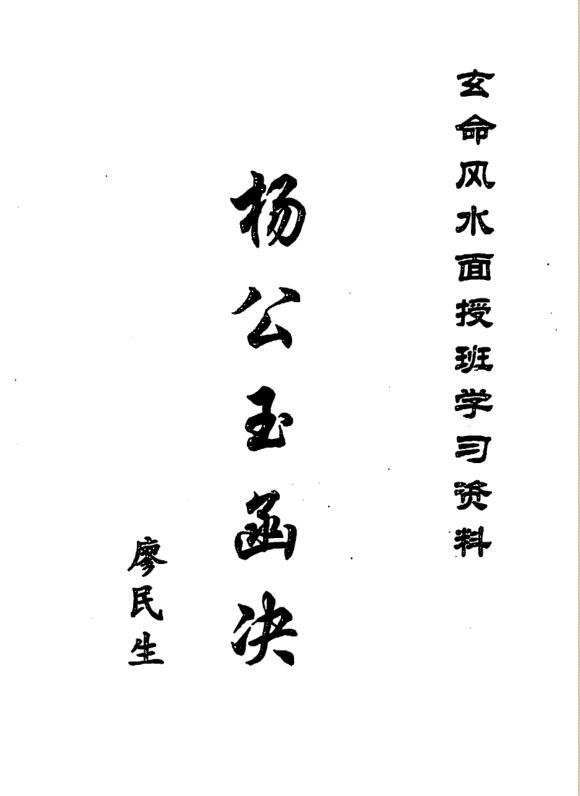 玄命风水面授班学习资料
杨公玉函决
廖民生